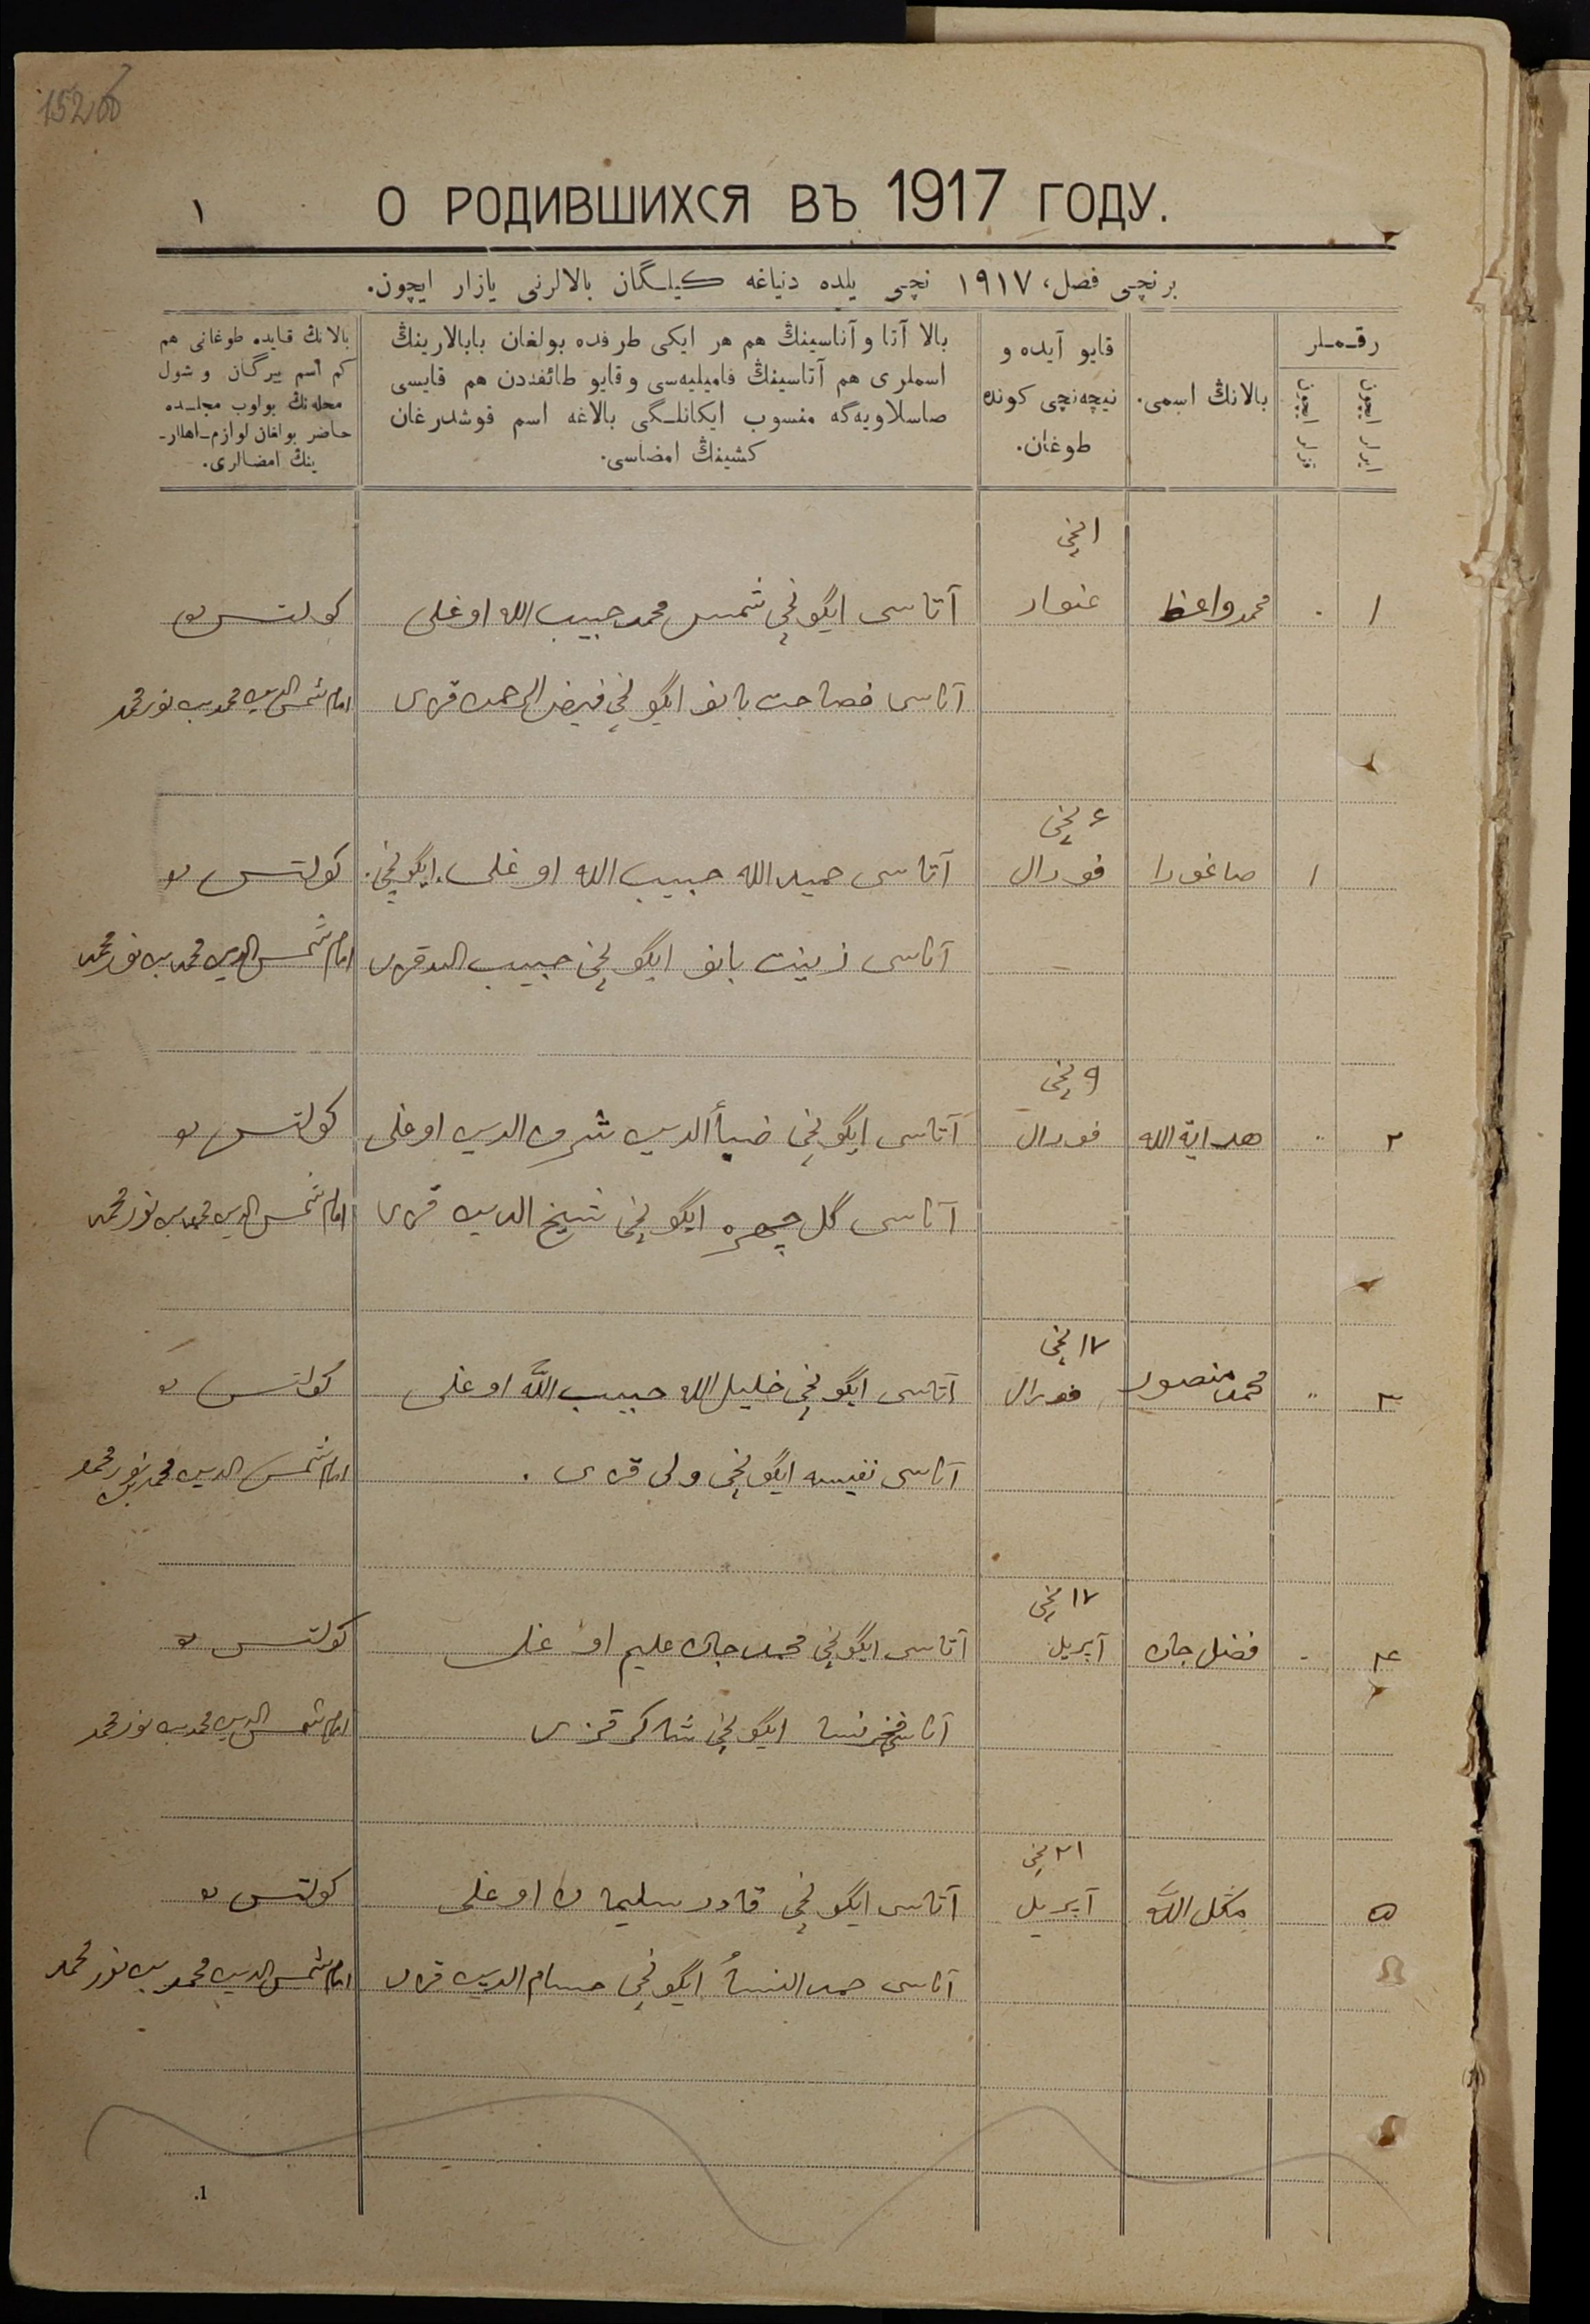 1526
О РОДИВШИХСЯ ВЪ 1917 ГОДУ.
١
برنچی فصل، ١٩١٧ نچی یلده دنیاغه کیلگان بالالرنی یازار ایچون.
رقملر
ایرلر ایچون
قزلر ایچون
بالانڭ اسمی.
قایو آیده و
نیچه‌نچی کونده
طوغان.
بالا آتا و آناسینڭ هم هر ایکی طرفده بولغان بابالارینڭ
اسملری هم آتاسینڭ فامیلیه‌سی و قایو طائفه‌دن هم قایسی
صاسلاویه‌گه منسوب ایکانلگی بالاغه اسم قوشدرغان
کشینڭ امضاسی.
بالانڭ قایده طوغانی هم
کم اسم بیرگان و شول
محله‌نڭ بولوب مجلسده
حاضر بولغان لوازم اهللر-
ینڭ امضالری.
١ نچی
١ محمد واعظ غنوار آتاسی ایگونچی شمس محمد حبیب الله اوغلی کولتس
آناسی فصاحت بانو ایگونچی فیض الرحمن قزی امام شمس الدین محمد بن نور محمد
۶ نچی
١ صاغورا فورال آتاسی حمید الله حبیب الله اوغلی ایگونچی. کولتس
آناسی زینت بانو ایگونچی حبیب الله قزی امام شمس الدین محمد بن نور محمد
٩ نچی
٢ هدایة الله فورال آتاسی ایگونچی ضیاءالدین شرف الدین اوغلی کولتس
آناسی گل چهره ایگونچی شیخ الدین قزی امام شمس الدین محمد بن نور محمد
١٧ نچی
٣ محمد منصور فورال آتاسی ایگونچی خلیل الله حبیب الله اوغلی کولتس
آناسی نفیسه ایگونچی ولی قزی. امام شمس الدین محمد بن نور محمد
١٧ نچی
۴ فضل جان آپریل آتاسی ایگونچی محمد جان علیم اوغلی کولتس
آناسی فخرنسا ایگونچی شاکر قزی امام شمس الدین محمد بن نور محمد
٢١ نچی
۵ آپریل آتاسی ایگونچی قادر سلیمان اوغلی کولتس
آناسی حمد النساء ایگونچی حسام الدین قزی امام شمس الدین محمد بن نور محمد
1.